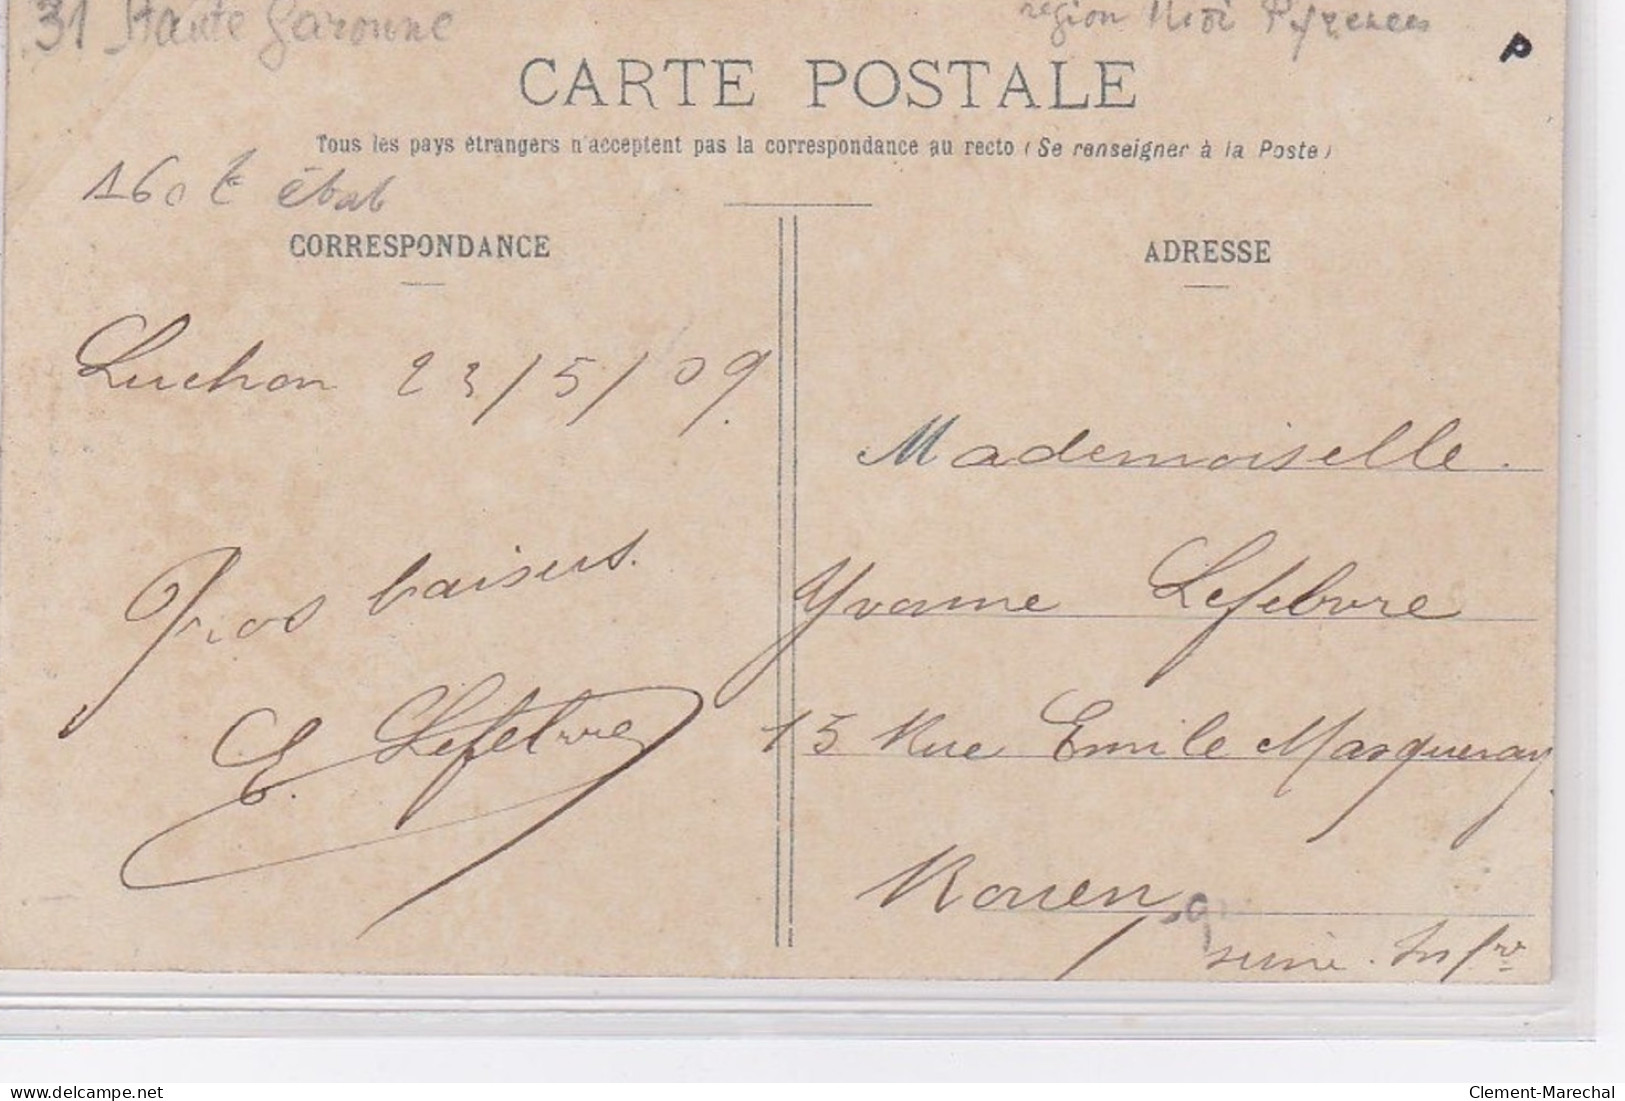 31 Haute Garonne
région Midi Pyrénées
P
CARTE POSTALE
Tous les pays étrangers n'acceptent pas la correspondance au recto (Se renseigner à la Poste)
160
CORRESPONDANCE
ADRESSE
Luchon 23/5/09.
Gros baisers.
E. Lefebvre
Mademoiselle.
Yvonne Lefebvre
15 Rue Emile Masqueray
Rouen
Seine Infre
delcampe.net
Clement-Marechal